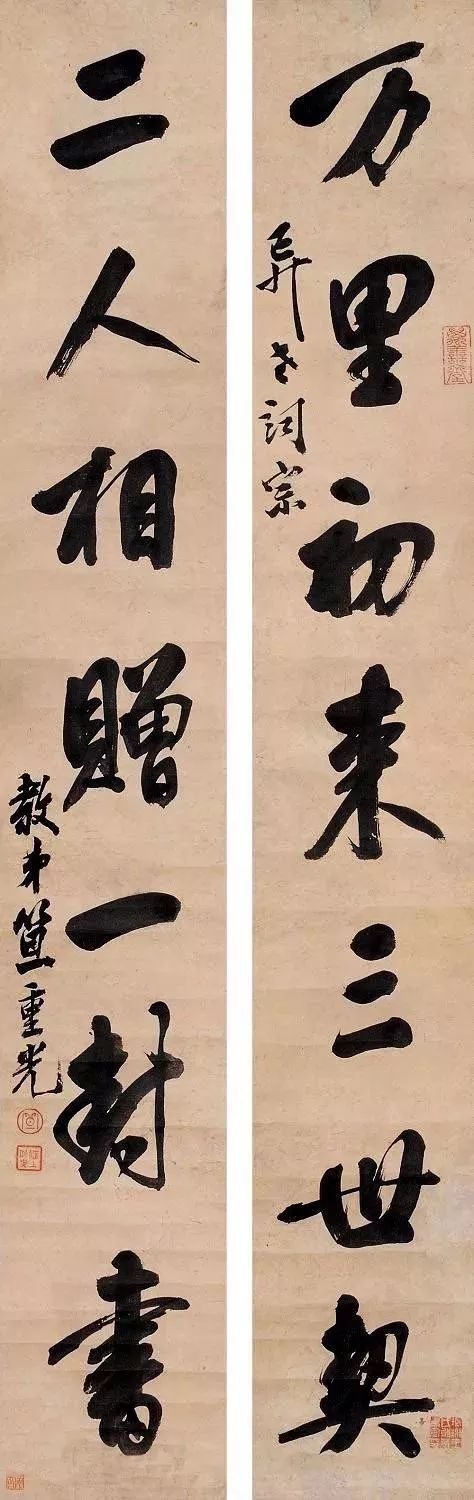 万里初来三世契
弈老词宗
二人相赠一封书
教弟笪重光
笪